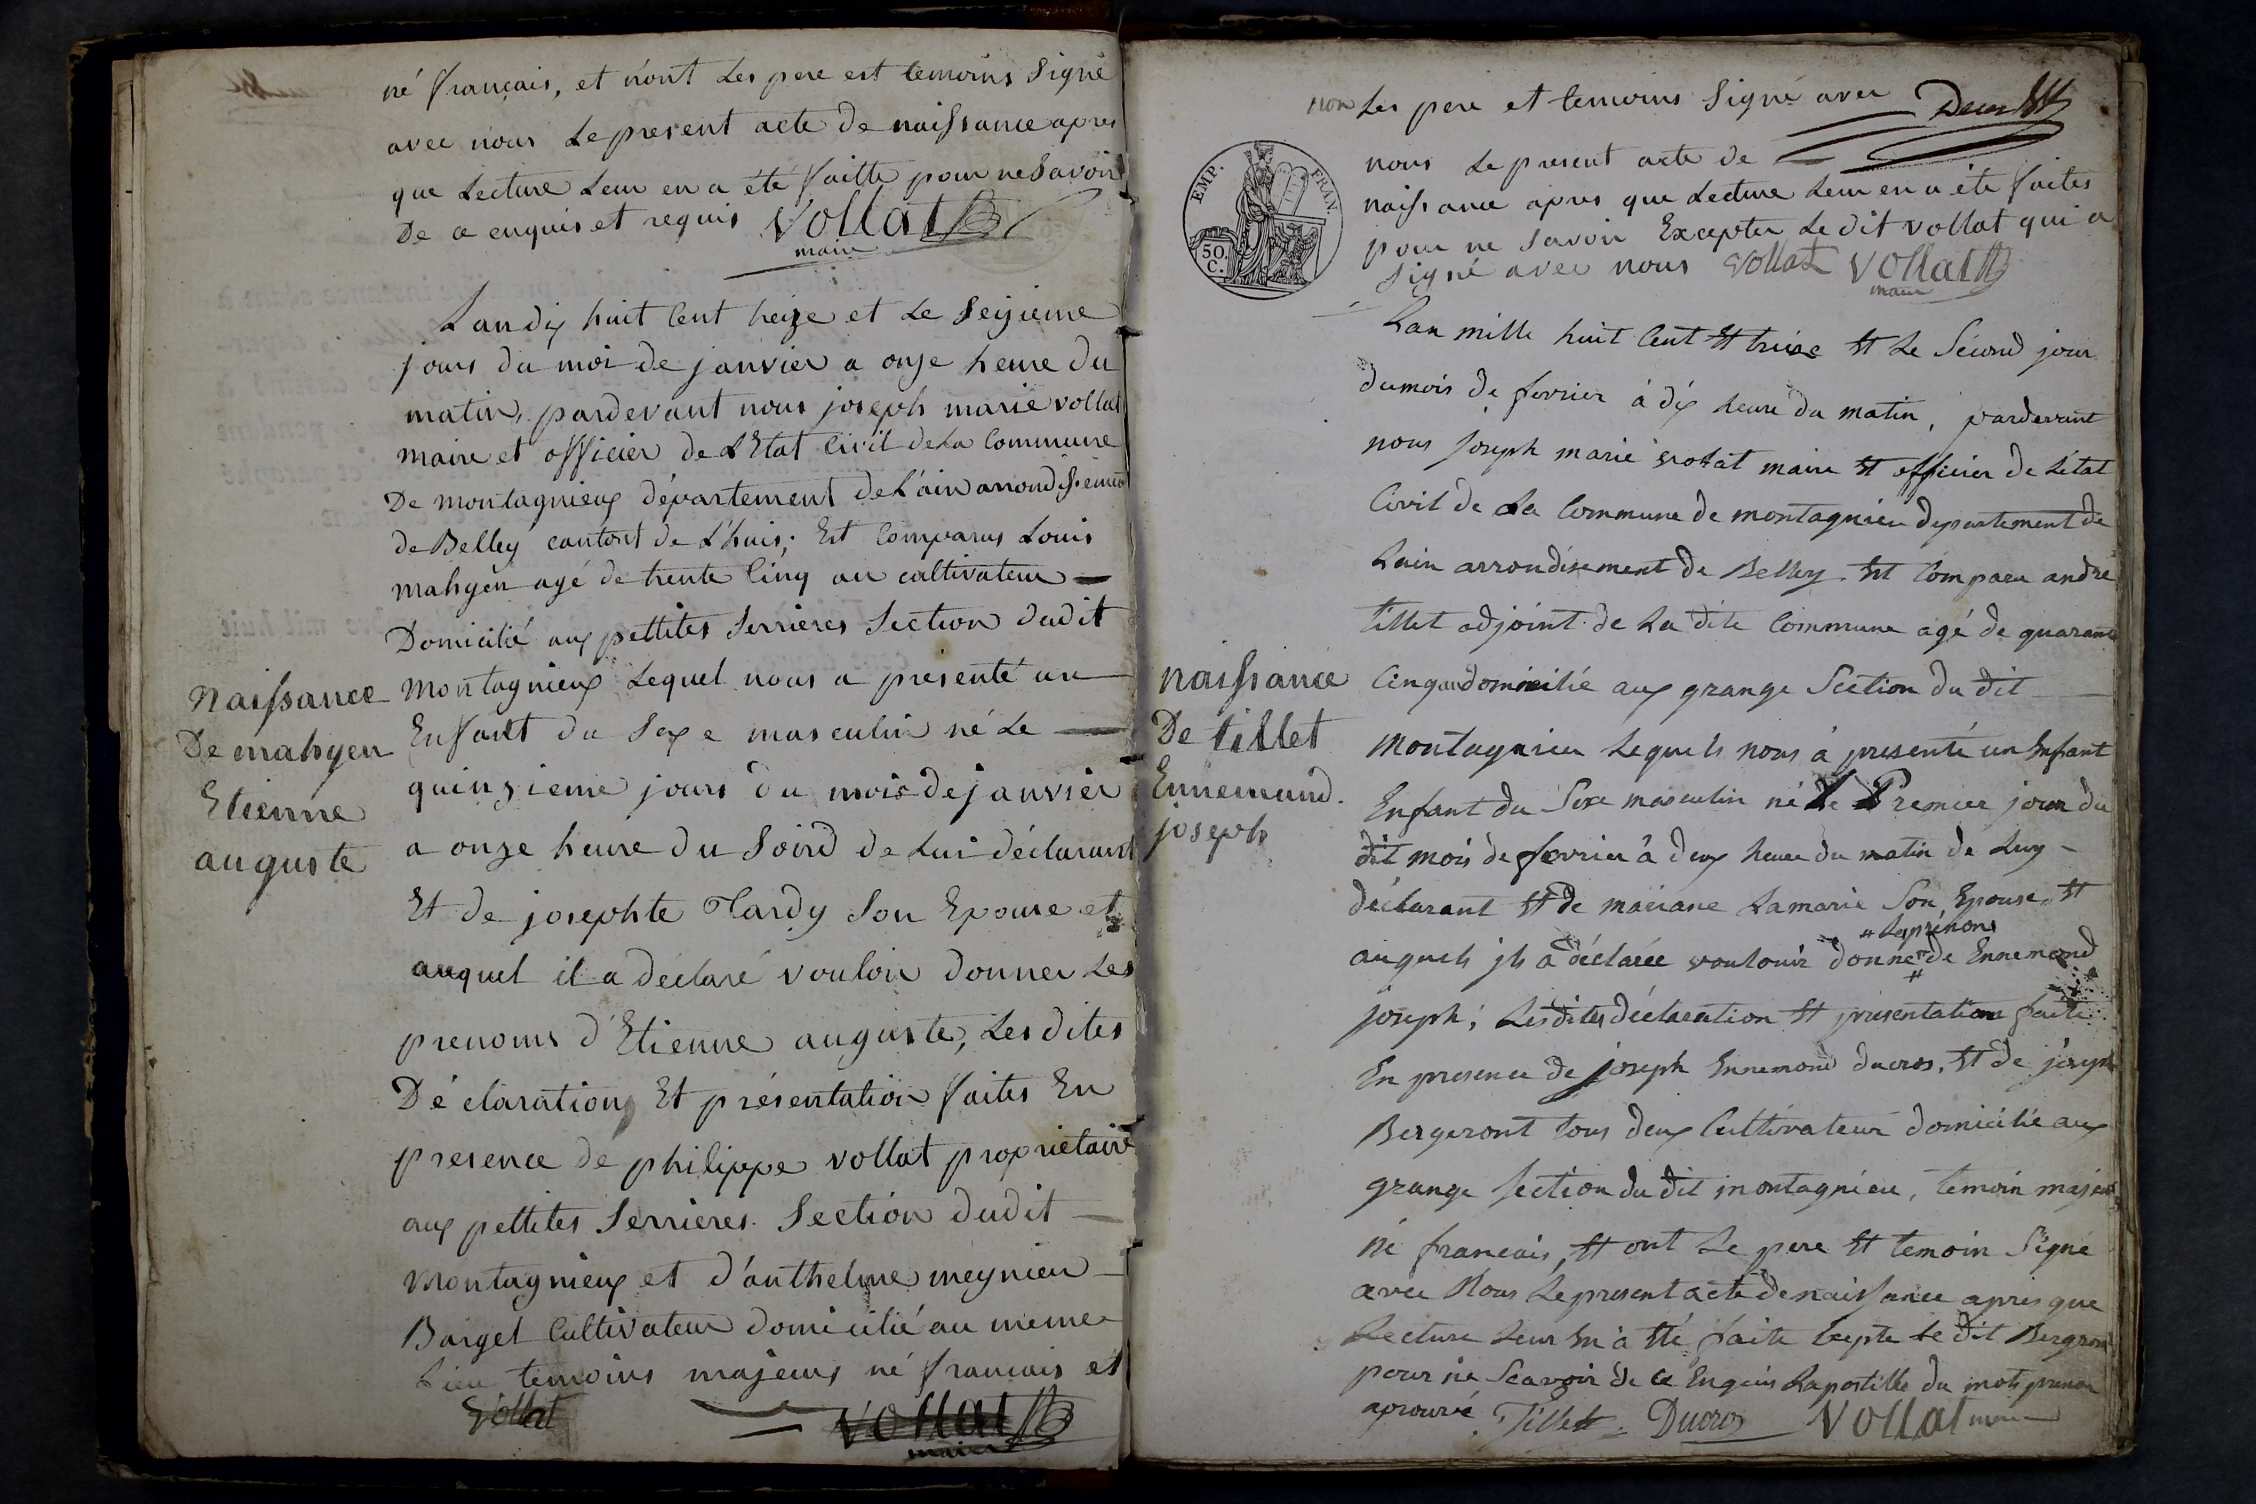 né français, et n'ont Les pere est temoins Signé
avec nous Le present acte de naissance apres
que Lecture Leur en a été faitte pour ne Savoir
De ce enquis et requis Vollat
maire
Lan dix huit Cent treize et Le Seizieme
jours du moi de janvier a onze heure du
matin, pardevant nous joseph marie vollat
maire et officier de L'Etat Civil de La Commune
De montagnieux département de L'ain arrondissement
de Belley cantont de L'huis; Est Comparus Louis
mahyen agé de trente Cinq an cultivateur
Domicilié aux pettites Serrieres Section dudit
Naissance
De mahyen
Etienne
auguste
montagnieux Lequel nous a presenté un
Enfant du Sexe masculin né Le
quinzieme jours du mois de janvier
a onze heure du Soird de Lui déclarant
Et de josephte Tardy Son Epouse et
auquel il a déclaré vouloir donner Les
prenoms d'Etienne auguste, Les dites
Déclaration Et présentation faites En
presence de philippe vollat proprietaire
aux pettites Serrieres Section dudit
Montagnieux et d'anthelme meynieu
Barget Cultivateur domicilié au meme
Lieu temoins majeurs né francais et
Vollat
Vollat
maire
non Les pere et temoins Signé avec
EMP. FRAN.
50 C.
nous Le present acte de
naissance apres que Lecture Leur en a éte faites
pour ne Savoir Excepter Le dit vollat qui a
Signé avec nous Vollat Vollat
maire
Lan mille huit Cent Et treize Et Le Second jour
du mois de fevrier à dix heure du matin, pardevant
nous Joseph marie vollat maire Et officier de L'état
Civil de La Commune de montagnieu departement de
Lain arrondisement de Belley. Est Comparu andré
Tillet adjoint de La dite Commune agé de quarante
naissance
De tillet
Ennemund.
joseph
Cinq an domicilié aux grange Section du dit
montagnieu Lequels nous à presenté un Enfant
Enfant du Sexe masculin né Le Premier jour du
dit mois de fevrier à deux heure du matin de Luy
déclarant Et de mariane Lamarie Son Epouse, Et
# Les prénoms
auquels jls a déclarée voulouir donner # de Ennemond
joseph; Les dites déclaration Et présentation faite
En presence de joseph Ennemond ducros, Et de joseph
Bergeront tous deux Cultivateur domicilié aux
grange Section du dit montagnieu, temoin majeur
né francais, Et ont Le pere Et temoin Signé
avec Nous Le present acte de naissance apres que
Lecture Leur En à Eté faite Cepte Le dit Bergeron
pour ne Scavoir de ce Enquis Lapostille du mots prenon
aprouvé Tillet Ducros Vollat maire